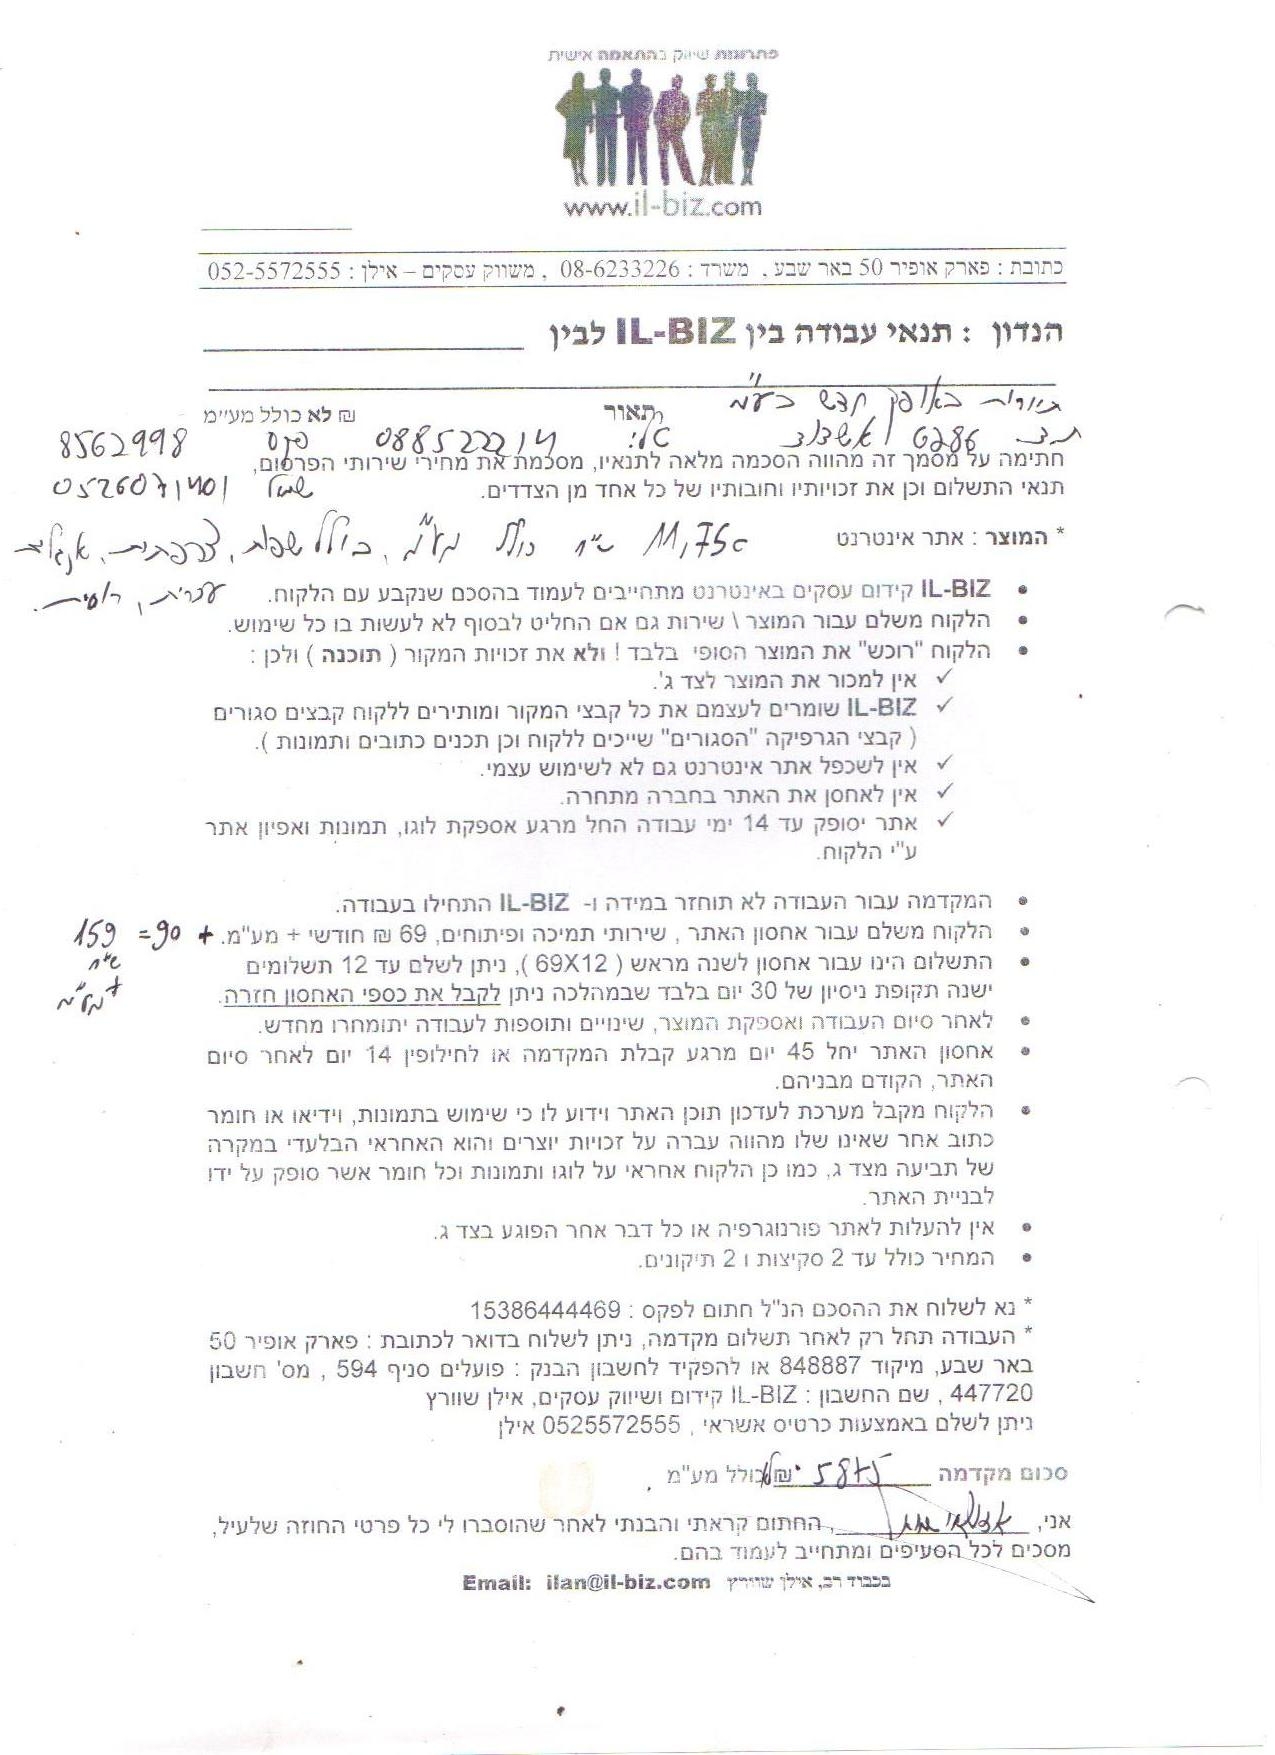 פתרונות שיווק בהתאמה אישית
www.il-biz.com
כתובת : פארק אופיר 50 באר שבע , משרד : 08-6233226 , משווק עסקים – אילן : 052-5572555
הנדון : תנאי עבודה בין IL-BIZ לבין
תיירות באופק חדש בע"מ
תאור ₪ לא כולל מע"מ
ת.ד. 6286 אשדוד 0885222 פקס 8562998
חתימה על מסמך זה מהווה הסכמה מלאה לתנאיו, מסכמת את מחירי שירותי הפרסום,
תנאי התשלום וכן את זכויותיו וחובותיו של כל אחד מן הצדדים.
* המוצר : אתר אינטרנט 11,750 ש"ח כולל מע"מ, כולל שפות, צרפתית, אנגלית
עברית, רוסית.
• IL-BIZ קידום עסקים באינטרנט מתחייבים לעמוד בהסכם שנקבע עם הלקוח.
• הלקוח משלם עבור המוצר \ שירות גם אם החליט לבסוף לא לעשות בו כל שימוש.
• הלקוח "רוכש" את המוצר הסופי בלבד ! ולא את זכויות המקור ( תוכנה ) ולכן :
✓ אין למכור את המוצר לצד ג'.
✓ IL-BIZ שומרים לעצמם את כל קבצי המקור ומותירים ללקוח קבצים סגורים
( קבצי הגרפיקה "הסגורים" שייכים ללקוח וכן תכנים כתובים ותמונות ).
✓ אין לשכפל אתר אינטרנט גם לא לשימוש עצמי.
✓ אין לאחסן את האתר בחברה מתחרה.
✓ אתר יסופק עד 14 ימי עבודה החל מרגע אספקת לוגו, תמונות ואפיון אתר
ע"י הלקוח.
• המקדמה עבור העבודה לא תוחזר במידה ו- IL-BIZ התחילו בעבודה.
• הלקוח משלם עבור אחסון האתר , שירותי תמיכה ופיתוחים, 69 ₪ חודשי + מע"מ. + 90 = 159
• התשלום הינו עבור אחסון לשנה מראש ( 69X12 ), ניתן לשלם עד 12 תשלומים ש"ח
ישנה תקופת ניסיון של 30 יום בלבד שבמהלכה ניתן לקבל את כספי האחסון חזרה. + מע"מ
• לאחר סיום העבודה ואספקת המוצר, שינויים ותוספות לעבודה יתומחרו מחדש.
• אחסון האתר יחל 45 יום מרגע קבלת המקדמה או לחילופין 14 יום לאחר סיום
האתר, הקודם מבניהם.
• הלקוח מקבל מערכת לעדכון תוכן האתר וידוע לו כי שימוש בתמונות, וידיאו או חומר
כתוב אחר שאינו שלו מהווה עברה על זכויות יוצרים והוא האחראי הבלעדי במקרה
של תביעה מצד ג, כמו כן הלקוח אחראי על לוגו ותמונות וכל חומר אשר סופק על ידו
לבניית האתר.
• אין להעלות לאתר פורנוגרפיה או כל דבר אחר הפוגע בצד ג.
• המחיר כולל עד 2 סקיצות ו 2 תיקונים.
* נא לשלוח את ההסכם הנ"ל חתום לפקס : 15386444469
* העבודה תחל רק לאחר תשלום מקדמה, ניתן לשלוח בדואר לכתובת : פארק אופיר 50
באר שבע, מיקוד 848887 או להפקיד לחשבון הבנק : פועלים סניף 594 , מס' חשבון
447720 , שם החשבון : IL-BIZ קידום ושיווק עסקים, אילן שוורץ
ניתן לשלם באמצעות כרטיס אשראי , 0525572555 אילן
סכום מקדמה 5875 ₪ כולל מע"מ .
אני, , החתום קראתי והבנתי לאחר שהוסברו לי כל פרטי החוזה שלעיל,
מסכים לכל הסעיפים ומתחייב לעמוד בהם.
בכבוד רב, אילן שוורץ Email: ilan@il-biz.com